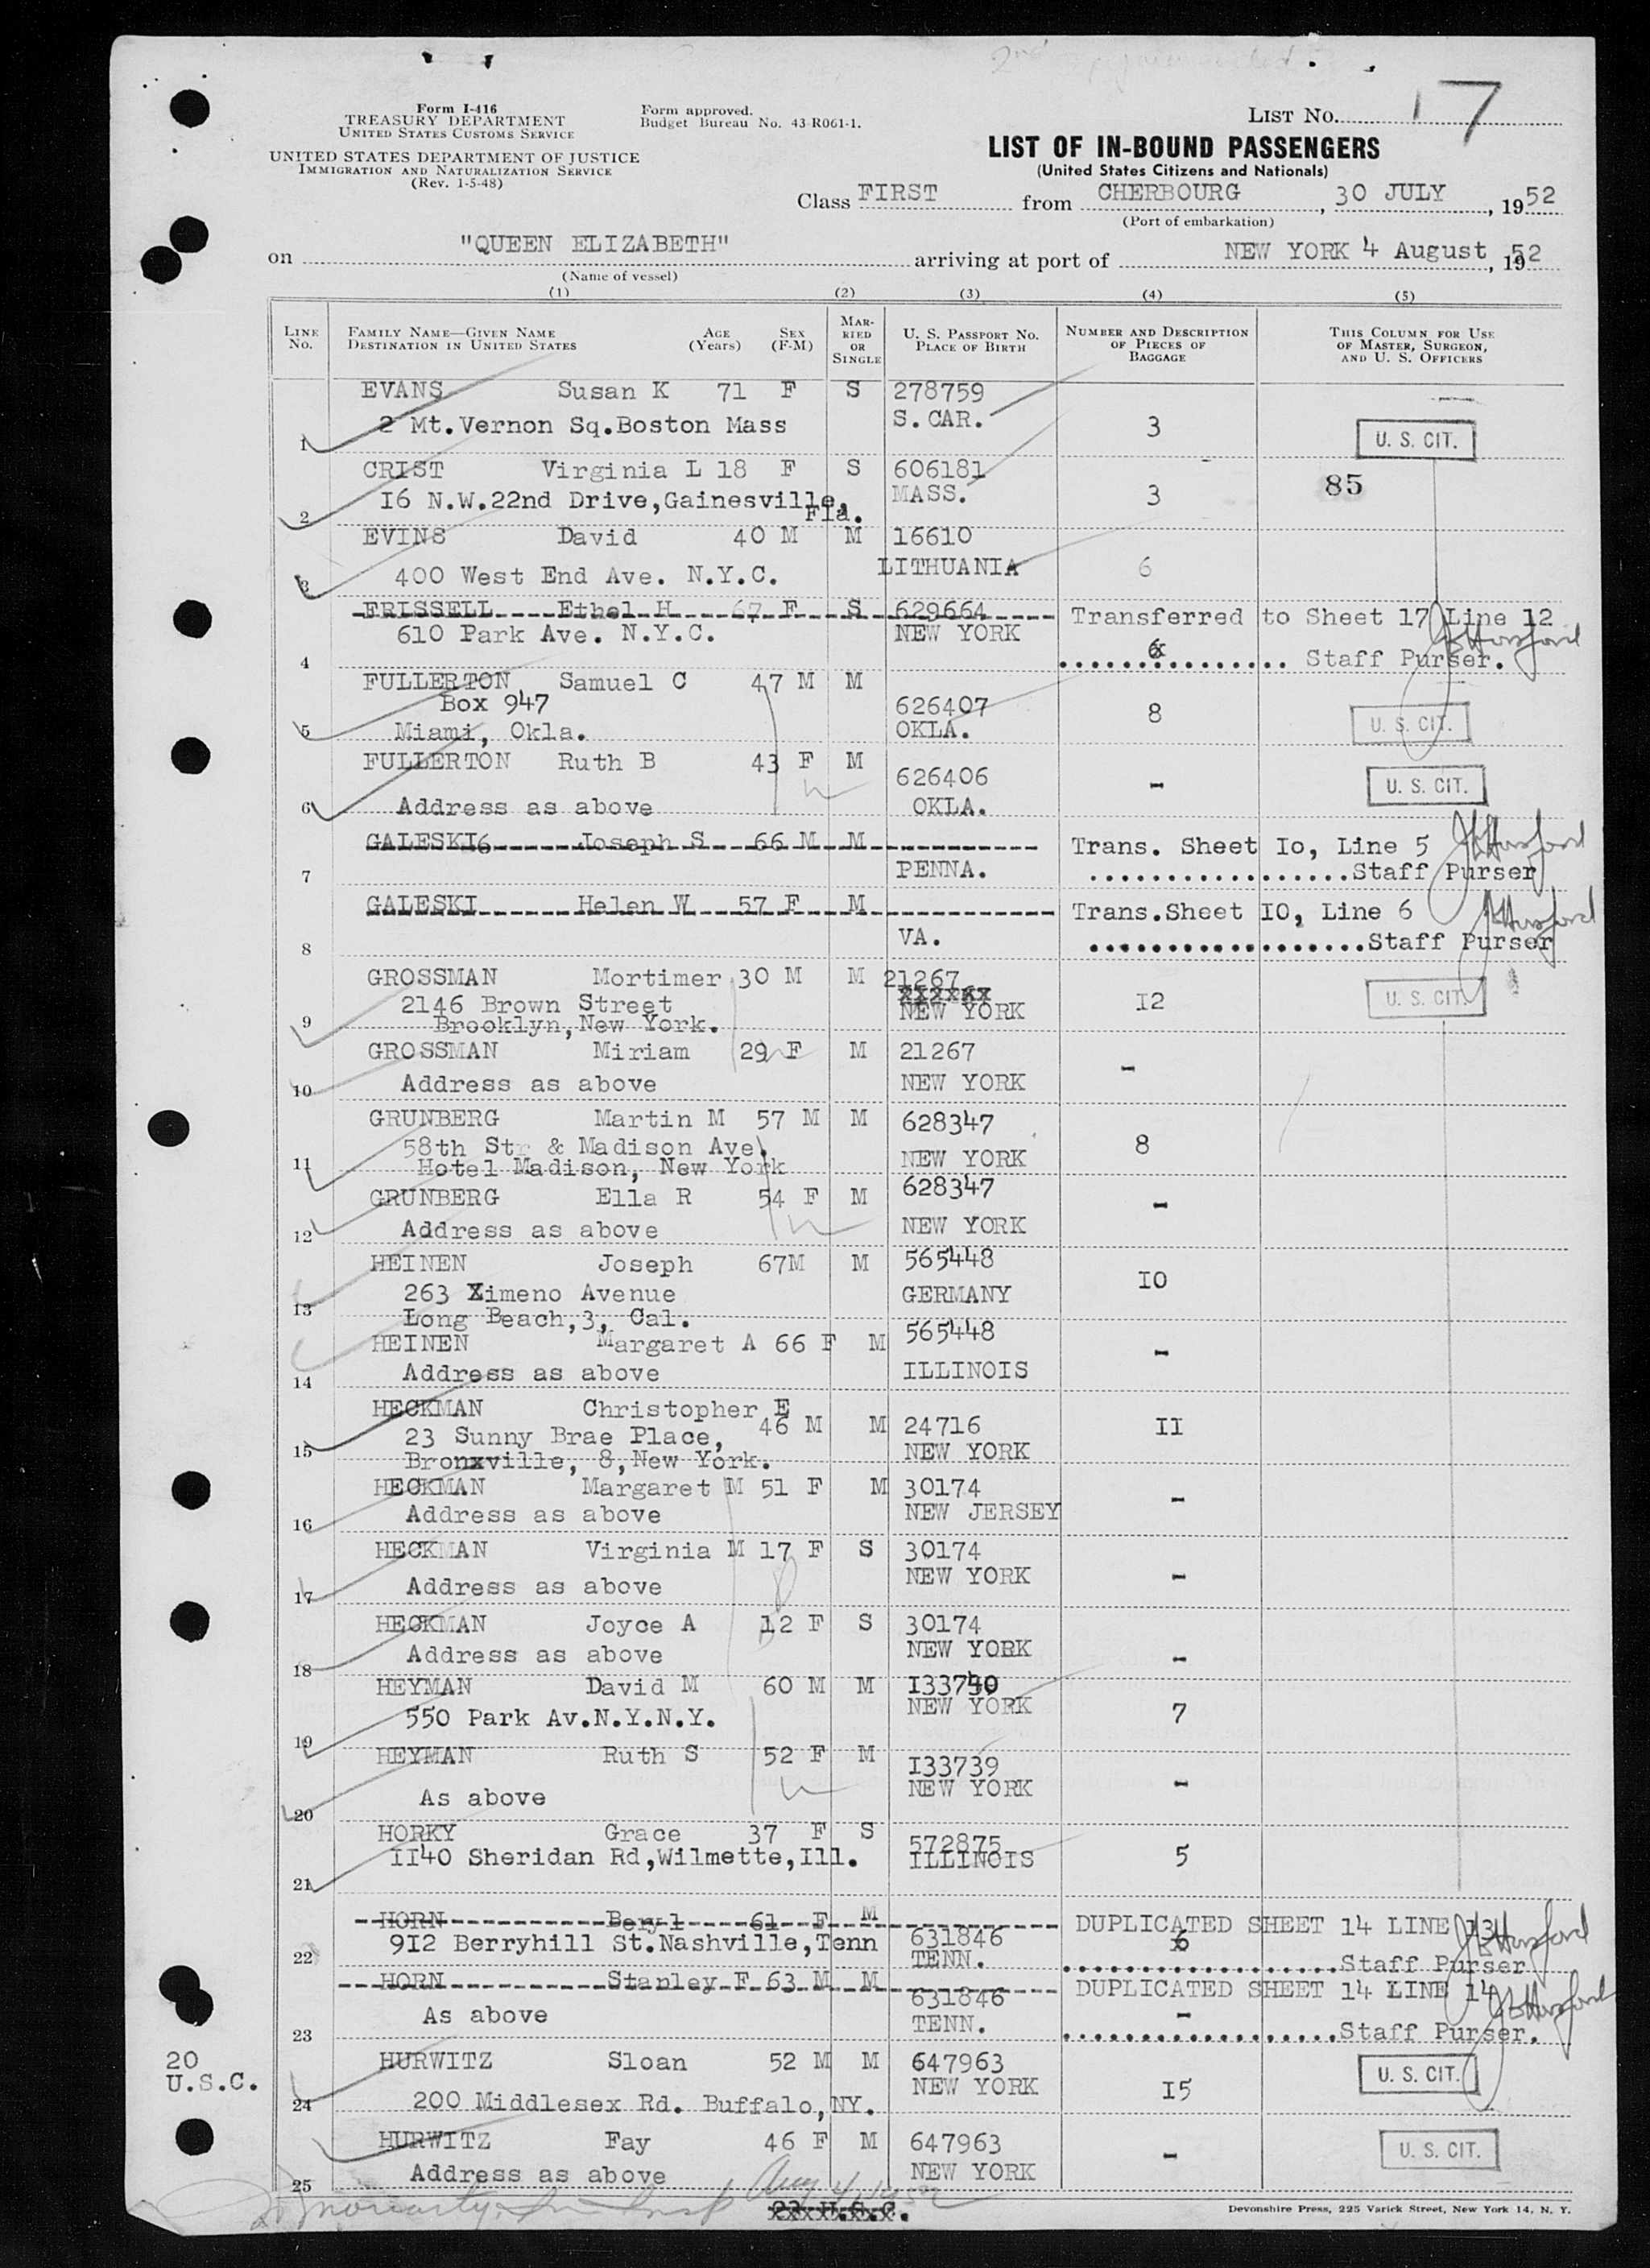 Form I-416
TREASURY DEPARTMENT
UNITED STATES CUSTOMS SERVICE
UNITED STATES DEPARTMENT OF JUSTICE
IMMIGRATION AND NATURALIZATION SERVICE
(Rev. 1-5-48)
Form approved.
Budget Bureau No. 43-R061-1.
LIST NO. 17
LIST OF IN-BOUND PASSENGERS
(United States Citizens and Nationals)
Class FIRST from CHERBOURG, 30 JULY, 1952
(Port of embarkation)
on "QUEEN ELIZABETH" arriving at port of NEW YORK 4 August, 1952
(Name of vessel)
(1) (2) (3) (4) (5)
LINE No. FAMILY NAME—GIVEN NAME DESTINATION IN UNITED STATES AGE (Years) SEX (F-M) MARRIED OR SINGLE U. S. PASSPORT NO. PLACE OF BIRTH NUMBER AND DESCRIPTION OF PIECES OF BAGGAGE THIS COLUMN FOR USE OF MASTER, SURGEON, AND U. S. OFFICERS
EVANS Susan K 71 F S 278759
1 2 Mt.Vernon Sq.Boston Mass S.CAR. 3 U. S. CIT.
CRIST Virginia L 18 F S 606181
16 N.W.22nd Drive,Gainesville, MASS. 3 85
2 Fla.
EVINS David 40 M M 16610
3 400 West End Ave. N.Y.C. LITHUANIA 6
FRISSELL Ethel H 67 F S 629664 Transferred to Sheet 17 Line 12
610 Park Ave. N.Y.C. NEW YORK 6
4 Staff Purser.
FULLERTON Samuel C 47 M M
Box 947 626407 8
5 Miami, Okla. OKLA. U. S. CIT.
FULLERTON Ruth B 43 F M 626406 - U. S. CIT.
6 Address as above OKLA.
GALESKI6 Joseph S 66 M M Trans. Sheet Io, Line 5
7 PENNA. Staff Purser
GALESKI Helen W 57 F M Trans.Sheet IO, Line 6
8 VA. Staff Purser
GROSSMAN Mortimer 30 M M 21267
2146 Brown Street xxxxxx NEW YORK I2 U. S. CIT.
9 Brooklyn,New York.
GROSSMAN Miriam 29 F M 21267
10 Address as above NEW YORK -
GRUNBERG Martin M 57 M M 628347
58th Str & Madison Ave. 8
11 Hotel Madison, New York NEW YORK
GRUNBERG Ella R 54 F M 628347 -
12 Address as above NEW YORK
HEINEN Joseph 67M M 565448
263 Ximeno Avenue GERMANY IO
13 Long Beach,3, Cal.
HEINEN Margaret A 66 F M 565448 -
14 Address as above ILLINOIS
HECKMAN Christopher E
46 M M 24716 II
15 23 Sunny Brae Place, NEW YORK
Bronxville, 8,New York.
HECKMAN Margaret M 51 F M 30174 -
16 Address as above NEW JERSEY
HECKMAN Virginia M 17 F S 30174
17 Address as above NEW YORK -
HECKMAN Joyce A 12 F S 30174
18 Address as above NEW YORK -
HEYMAN David M 60 M M
19 550 Park Av.N.Y.N.Y. NEW YORK 7
HEYMAN Ruth S 52 F M I33739
20 As above NEW YORK -
HORKY Grace 37 F S 572875
21 II40 Sheridan Rd,Wilmette,Ill. ILLINOIS 5
HORN Beryl 61 F M DUPLICATED SHEET 14 LINE 13
22 912 Berryhill St.Nashville,Tenn 631846 TENN. 6 Staff Purser
HORN Stanley F 63 M M DUPLICATED SHEET 14 LINE 14
23 As above 631846 TENN. - Staff Purser.
20
U.S.C.
HURWITZ Sloan 52 M M 647963 U. S. CIT.
24 200 Middlesex Rd. Buffalo,NY. NEW YORK I5
HURWITZ Fay 46 F M 647963 - U. S. CIT.
25 Address as above NEW YORK
Moriarty Aug 4, 1952
23 U.S.C.
Devonshire Press, 225 Varick Street, New York 14, N. Y.